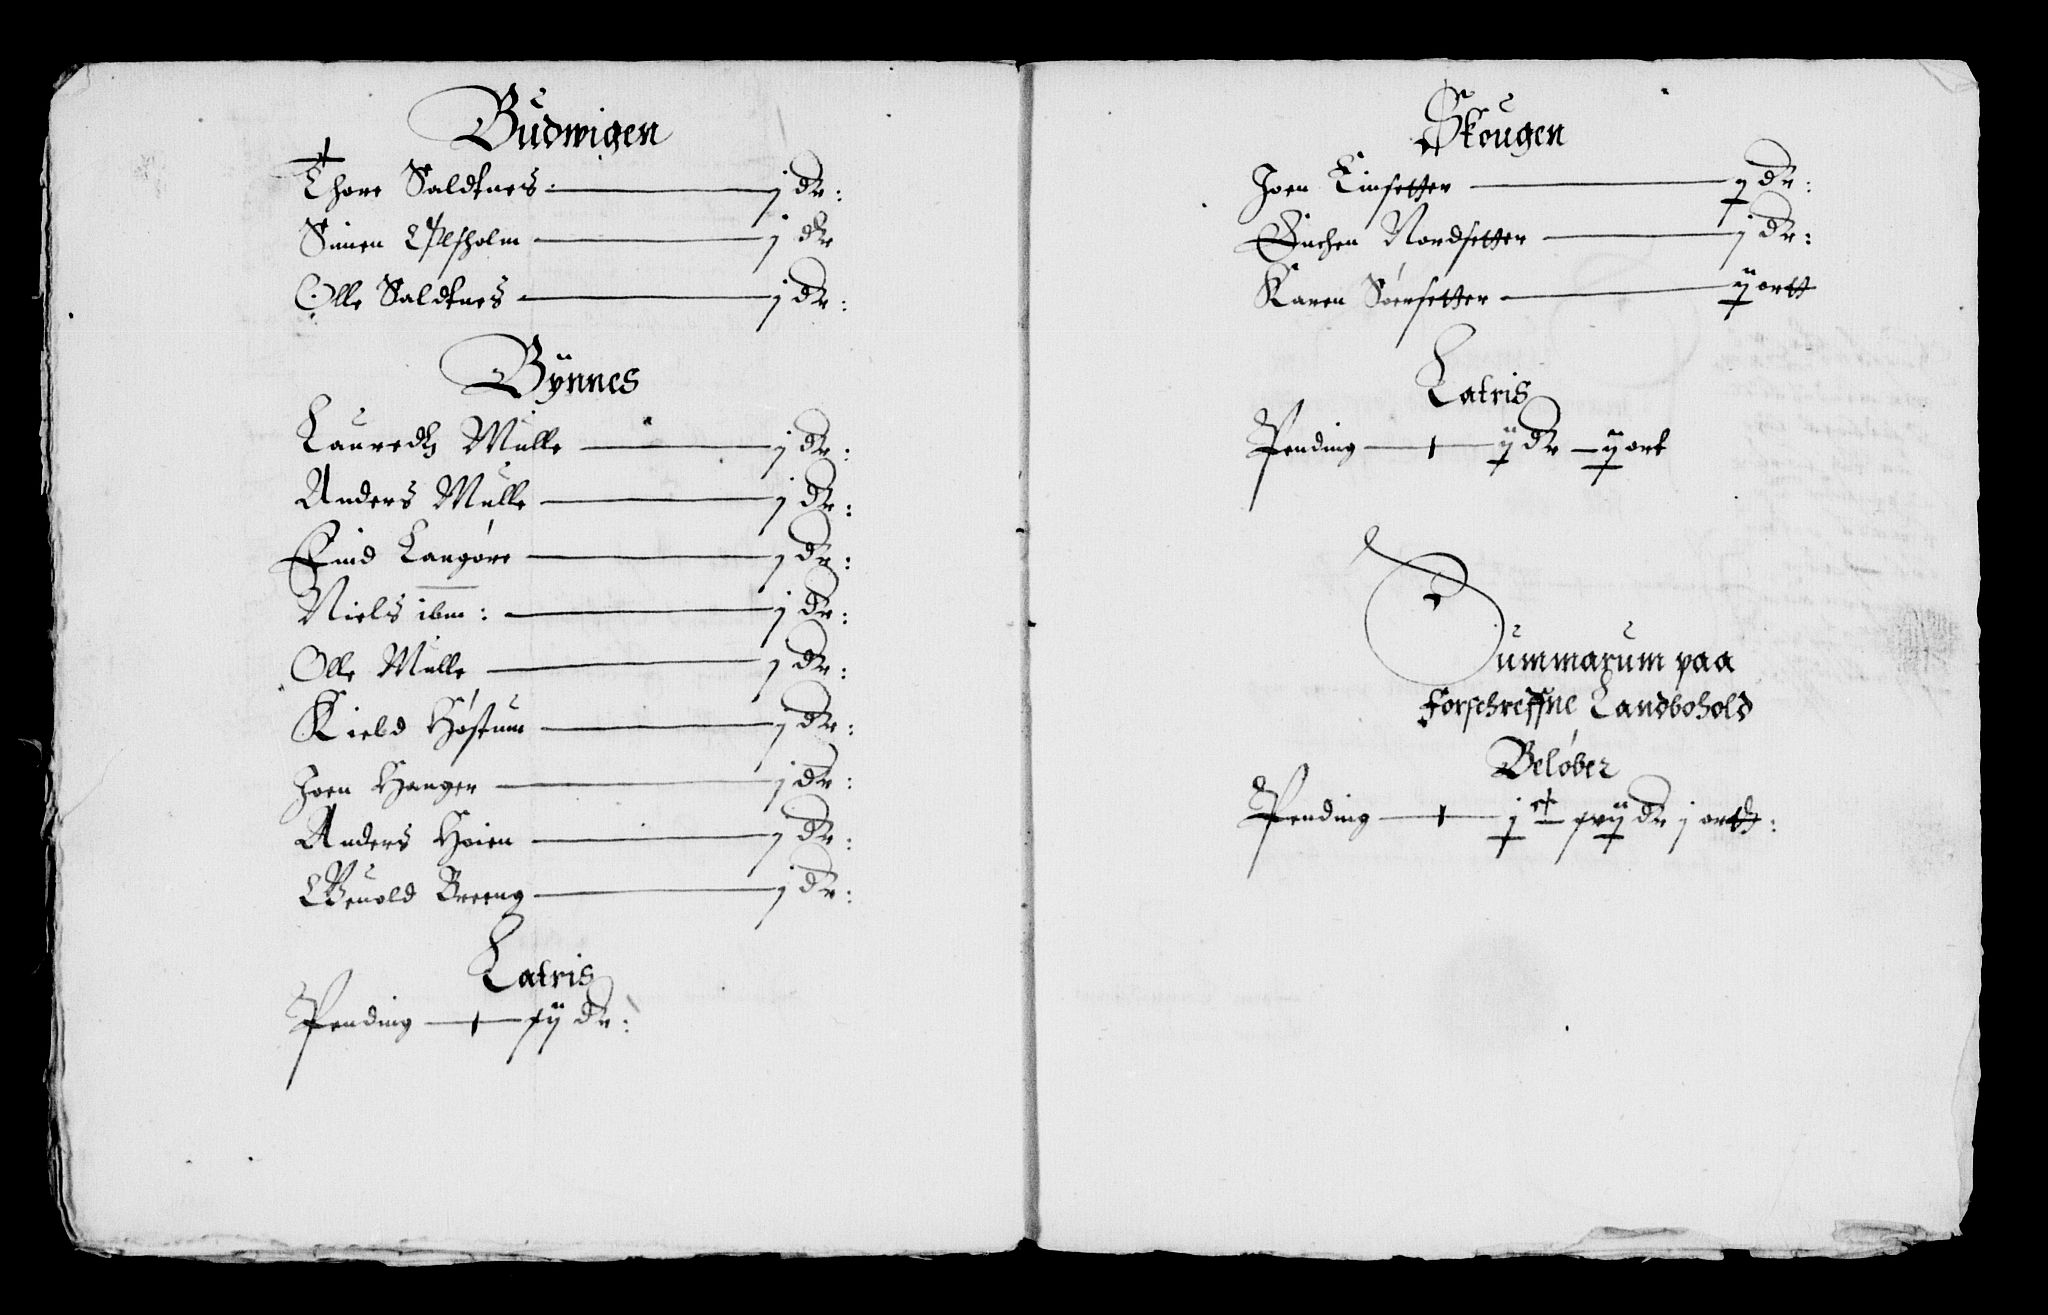 Budwigen
Thore Saldtnes: j dr:
Simen Ølsholm j dr
Olle Saldtnes j dr:
Bÿnnes
Lauredtz Mulle j dr:
Anders Mulle j dr:
Eind Langøre j dr:
Niels ibm: j dr:
Olle Mulle j dr:
Kield Høstum j dr:
Joen Hanger j dr:
Anders Høien j dr:
Breeng j dr:
Latris
Pending xij dr:
Skougen
Joen Linsetter j dr:
Nordsetter j dr:
Karen Sørsetter ij ortt
Latris
Pending ij dr ij ort
Summarum paa
forschreffne Landbohold
Beløber
Pending jc xvij dr j ortt: